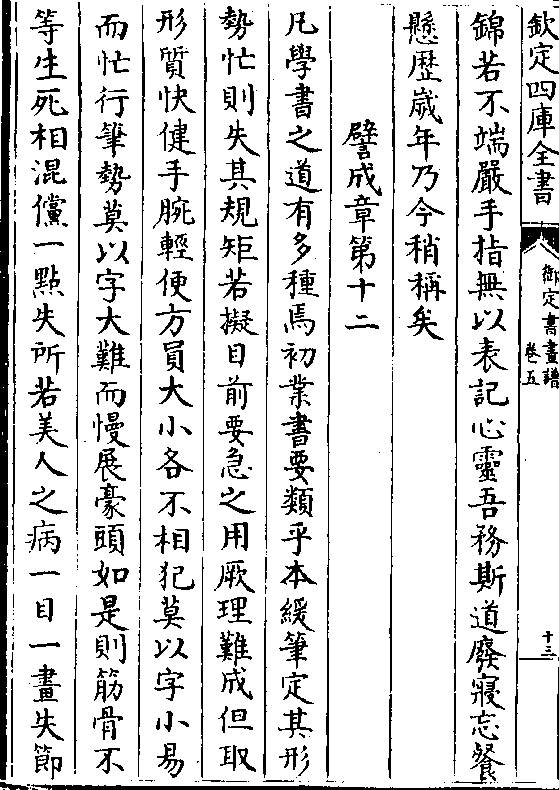 欽定四庫全書
御定書畫譜
卷五
十三
錦若不端嚴手指無以表記心靈吾務斯道廢寢忘餐
懸歴嵗年乃今稍稱矣
譬成章第十二
凡學書之道有多種焉初業書要類乎本緩筆定其形
勢忙則失其規矩若擬目前要急之用厥理難成但取
形質快健手腕輕便方員大小各不相犯莫以字小易
而忙行筆勢莫以字大難而慢展豪頭如是則筋骨不
等生死相混儻一點失所若美人之病一目一畫失節